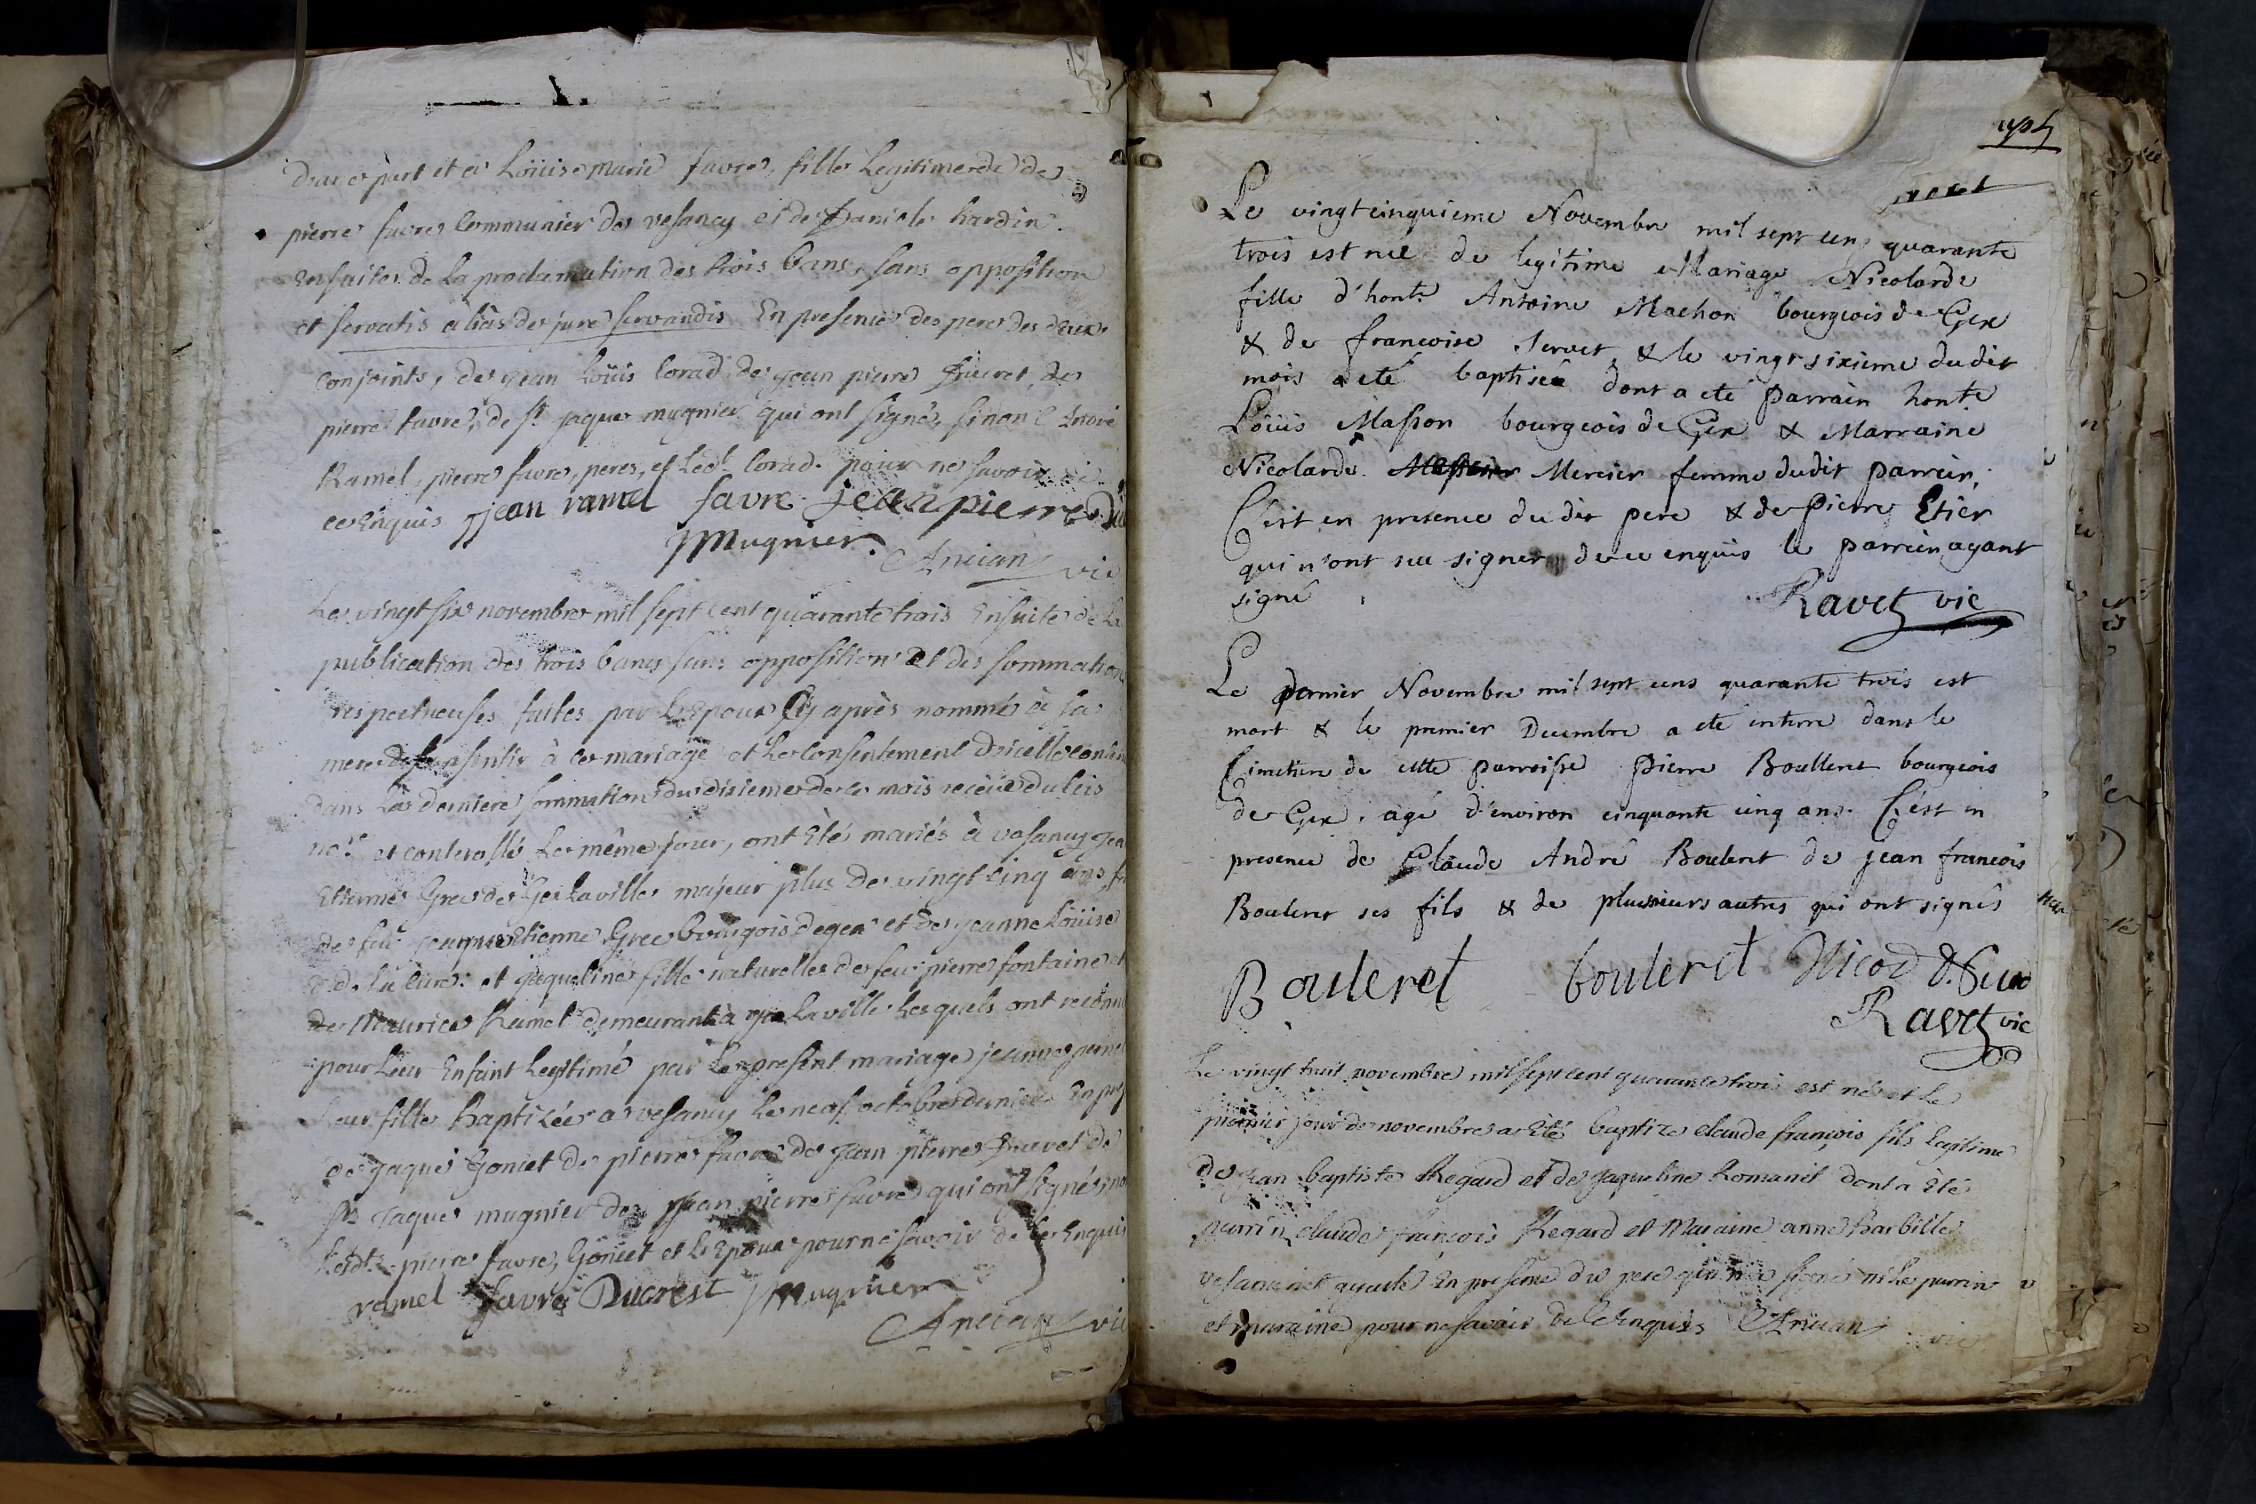 d'une part et a Loüise marie favre, fille Legitimere de
pierre favre Communier de vesancy et de Daniele hardin.
Ensuite de la proclamation des trois bans, sans opposition
et servatis aliàs de jure servandis En presence des peres des deux
conjoints, de jean Loüis Corad, de jean pierre
pierre favre, de Sr jaque mugnier qui ont signé, sinon
Ramel, pierre favre, peres, et Ledt Corad. pour ne savoir
ce Enquis jean ramel favre jean pierre
Mugnier.
Ancian vic
Le vingt six novembre mil sept Cent quarante trois Ensuite de La
publication des trois bancs sans opposition Et des sommations
respectueuses faites par L'Epoux Cy après nommé à sa
mere de Consentir à ce mariage et Le Consentement d'icelle
dans La derniere sommation du dixieme de ce mois receüe
no.re et controllé Le même jour, ont Eté mariés à vesancy
Etienne Gree de Gex La ville majeur plus de vingt Cinq ans
de feu Etienne Gree bourgois de gex et de jeanne Loüise
et jaqueline fille naturelle de feu pierre fontaine et
de Maurice Ramel demeurant à gex La ville Lesquels ont reconnu
pour Leur Enfant Legitimé par Le present mariage jeanne
Leur fille baptizée a vesancy Le neuf octobre dernier En
de jaque Goncet de pierre favre de jean pierre de
Sr jaque mugnier de jean pierre favre qui ont signés,
Ledt pierre favre, Goncet et L'Epoux pour ne savoir de Ce Enquis
ramel favre Ducrest Mugnier
Ancian vic
Le vingtcinquieme Novembre mil sept cens quarante
trois est neé de legitime Mariage Nicolarde
fille d'honte Antoine Machon bourgeois de Gex
& de francoise Servet, & le vingt sixieme dudit
mois a eté baptiseé dont a eté parrain honte
Loüis Masson bourgeois de Gex & Marraine
Nicolarde Mercier femme dudit parrein,
C'est en presence du dit pere & de Pierre Etier
qui n'ont seu signer de ce enquis le parrein ayant
signé
Ravet vic
Le dernier Novembre mil sept cens quarante trois est
mort & le premier Decembre a eté enterre dans le
Cimetiere de cette parroisse pierre Boulleret bourgeois
de Gex, agé d'environ cinquante cinq ans. C'est en
presence de Claude André Bouleret de jean francois
Bouleret ses fils & de plusieurs autres qui ont signés
Bouleret bouleret Nicod
Ravet vic
Le vingt huit novembre mil sept cent quarante trois est né et Le
premier jour de novembre a Eté baptizé claude françois fils Legitime
de jean baptiste Regard et de jaqueline Romanet dont a Eté
parrin claude françois Regard et Maraine anne barbille
En presence du pere qui n'a signé ni Le parrin
et maraine pour ne savoir de Ce Enquis Ancian vic